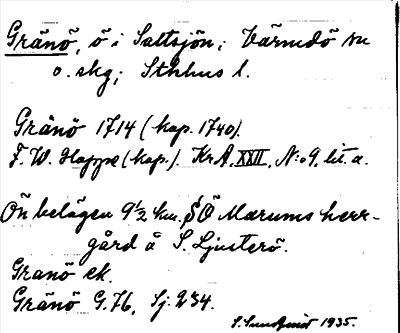 Gränö, ö i Saltsjön; Värmdö sn
o. skg; Sthlms l.
Gränö 1714 (kop. 1740).
F. W. Happe (kop.). KrA, XXII, N:o 9, lit. a.
Ön belägen 9½ km. SÖ Marums herr-
gård å S. Ljusterö.
Granö ek.
Gränö G. 76, Sj. 234.
S. Sundqvist 1935.